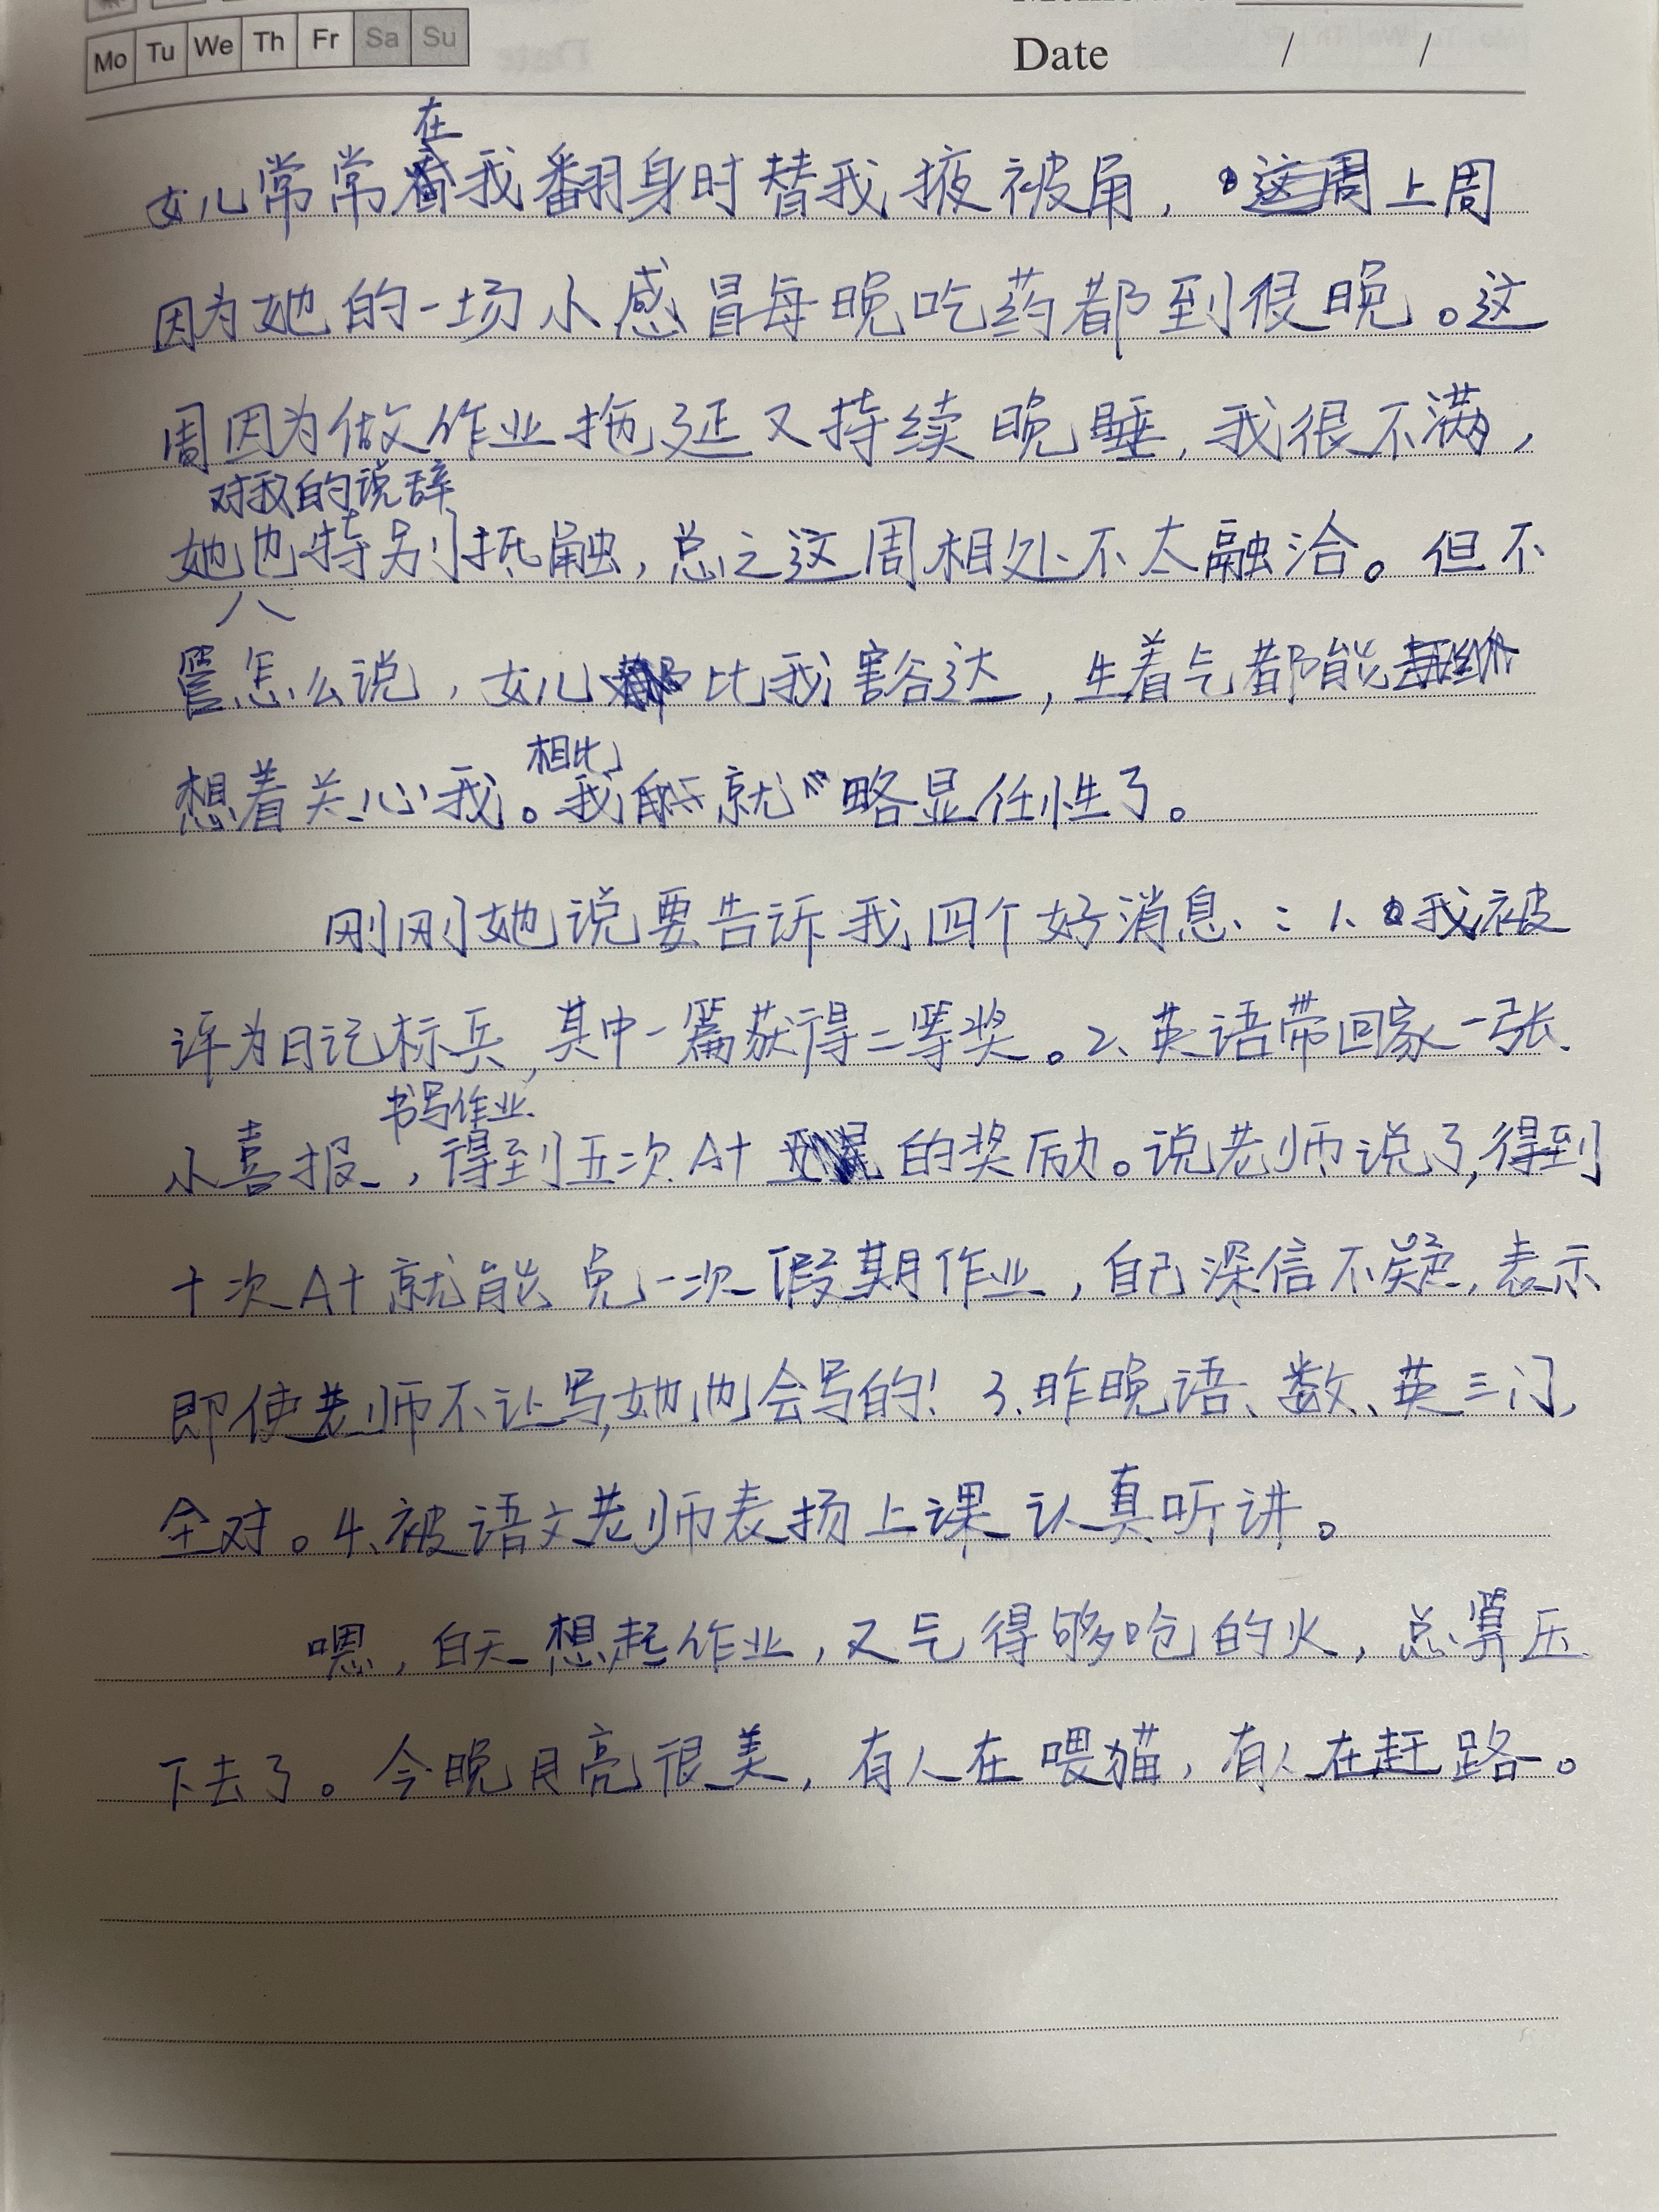 Mo Tu We Th Fr Sa Su
Date / /
在
女儿常常我翻身时替我掖被角，这周上周
因为她的一场小感冒每晚吃药都到很晚。这
周因为做作业拖延又持续晚睡，我很不满，
对我的说辞
她也特别抵触，总之这周相处不太融洽。但不
管怎么说，女儿比我豁达，生着气都能
相比
想着关心我。我就略显任性了。
刚刚她说要告诉我四个好消息：1、我被
评为日记标兵，其中一篇获得二等奖。2、英语带回家一张
书写作业
小喜报，得到五次A+的奖励。说老师说了，得到
十次A+就能免一次假期作业，自己深信不疑，表示
即使老师不让写，她也会写的！3、昨晚语、数、英三门，
全对。4、被语文老师表扬上课认真听讲。
嗯，白天想起作业，又气得够呛的火，总算压
下去了。今晚月亮很美，有人在喂猫，有人在赶路。